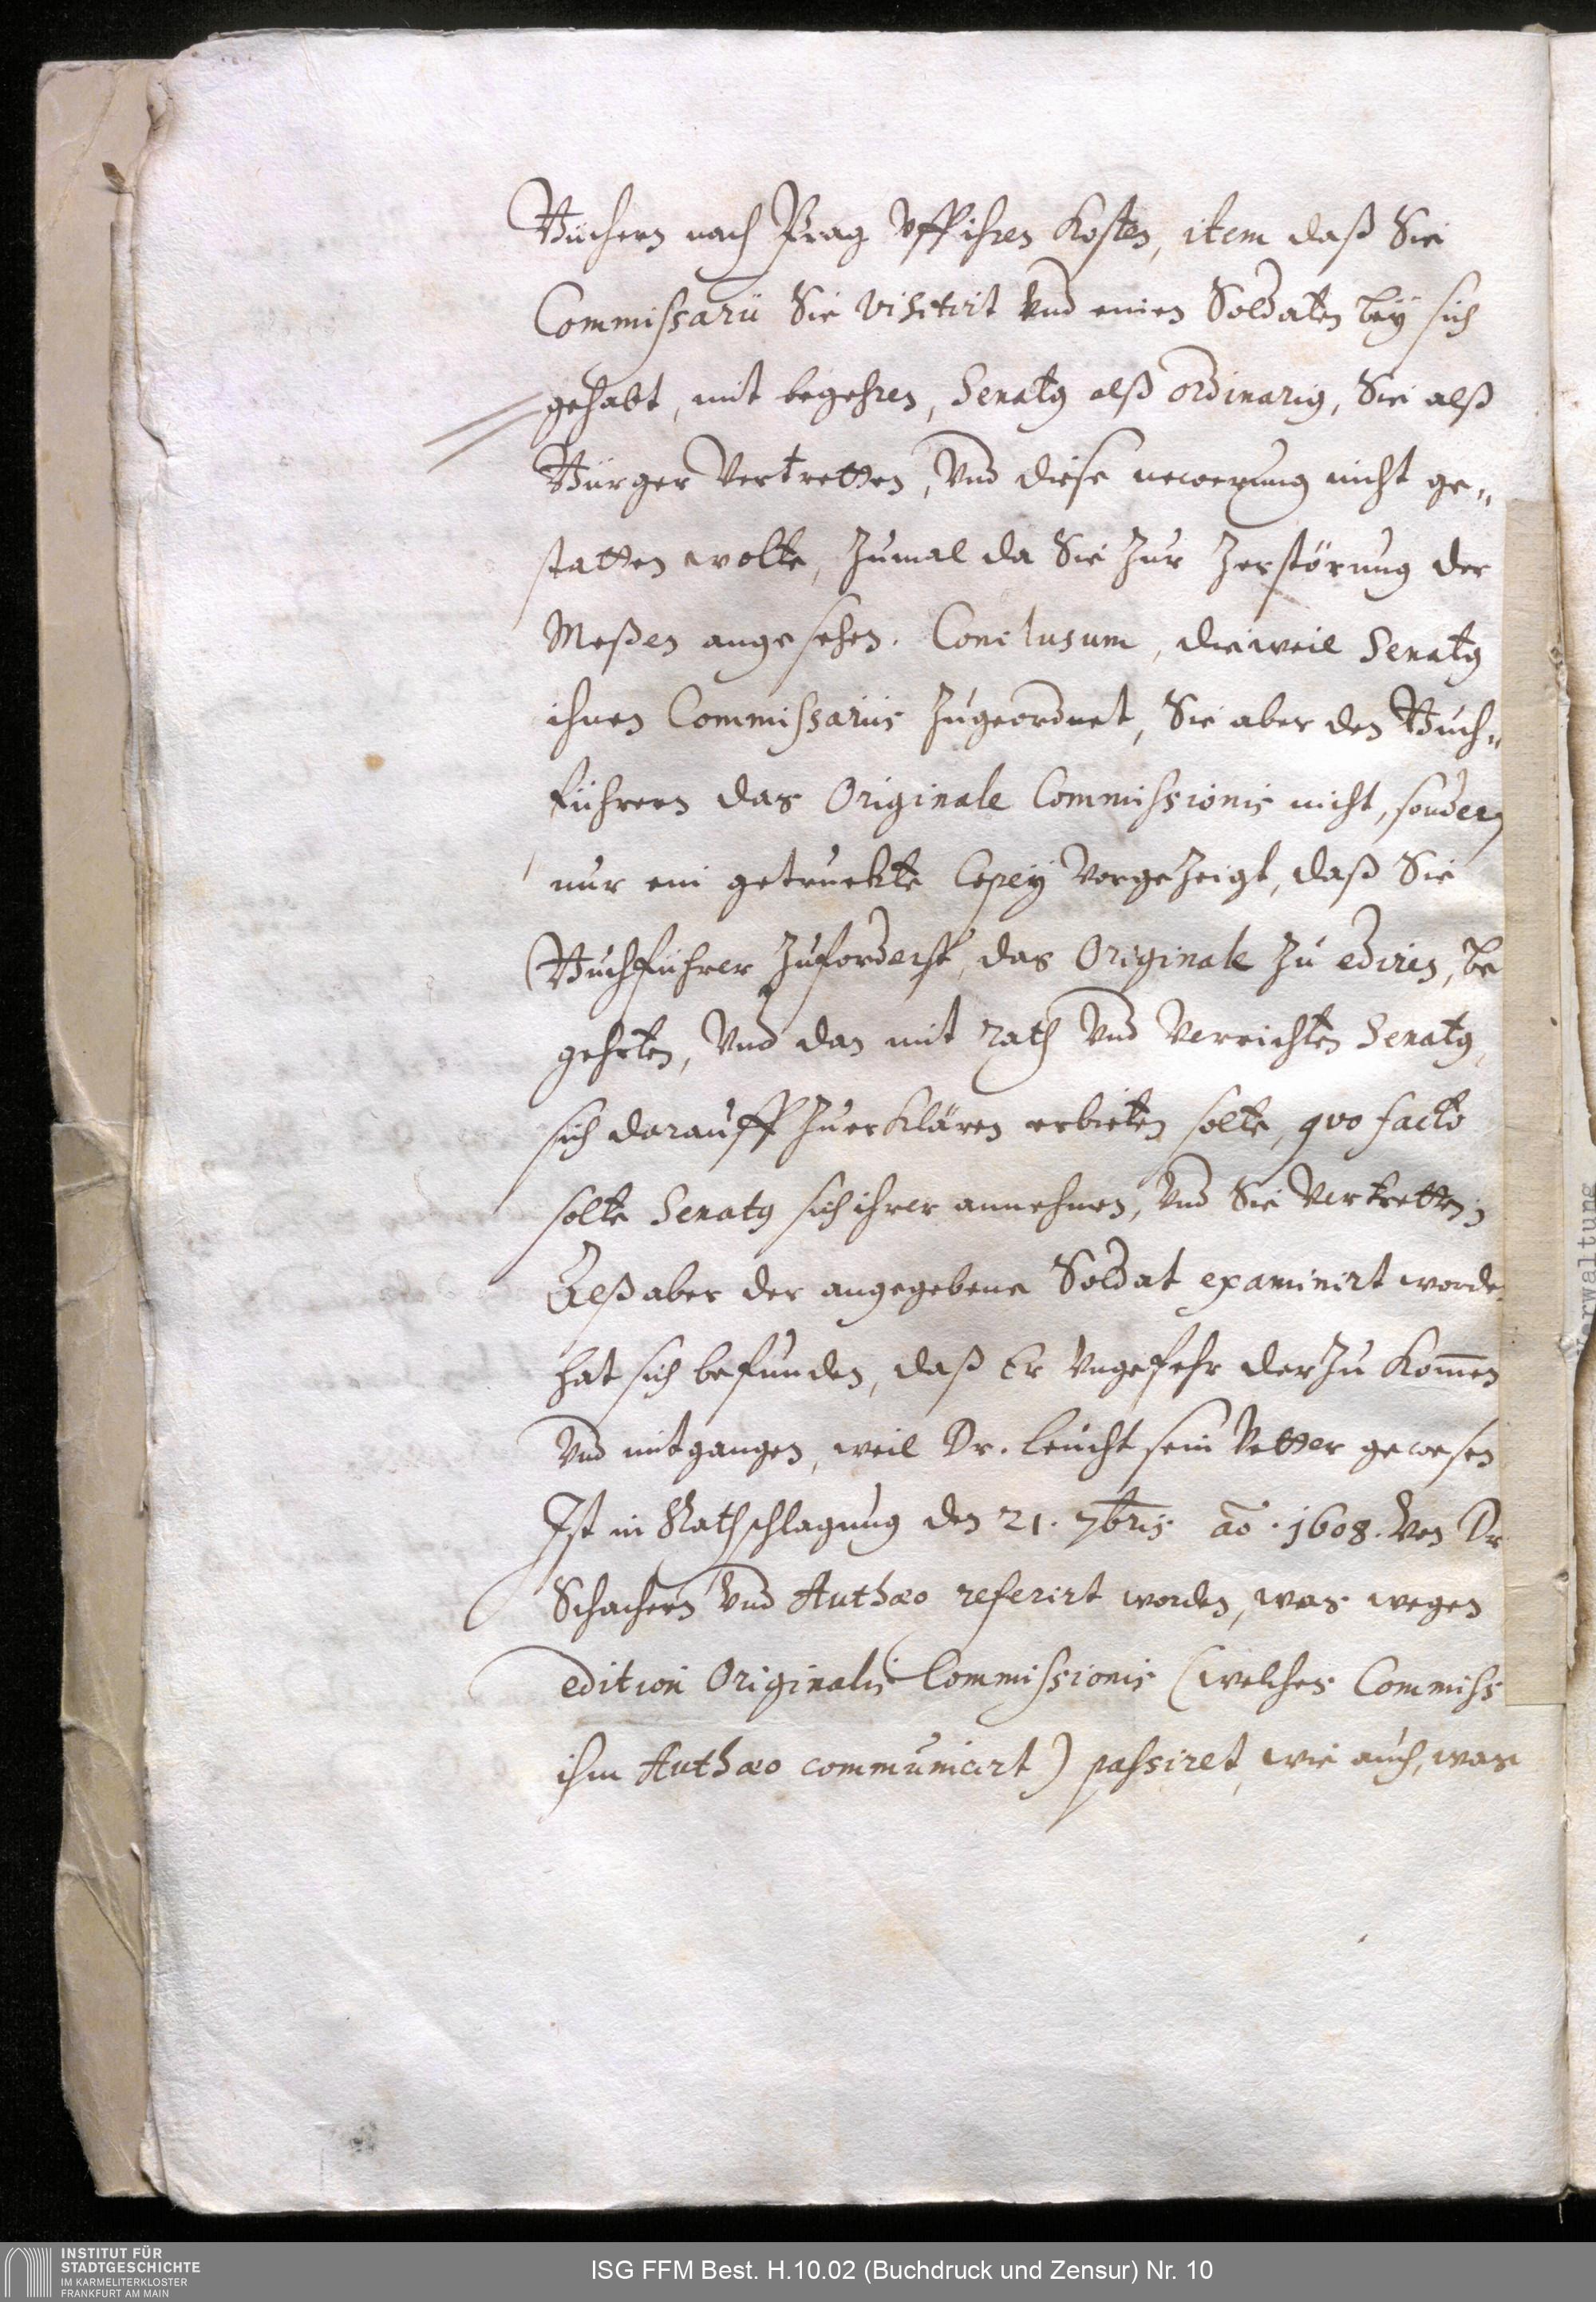 Büchern nach Prag vff ihren Kosten, item daß Sie
Commissarii Sie visitirt vnd einen Soldaten beÿ sich
gehabt, mit begehren, Senatus alß ordinarius, Sie alß
Bürger vertretten, vnd diese newerung nicht ge„
statten wolte, Zumal da Sie Zur Zerstörung der
Meßen angesehen. Conclusum, dieweil Senatus
ihnen Commissariis Zugeordnet, Sie aber den Buch„
führern das Originale Commissionis nicht, sondern
nur ein getruckte Copeÿ vorgeZeigt, daß Sie
Buchführer Zuforderst, das Originale Zu ediren, be
gehrten, vnd dan mit rath vnd Senatus,
sich darauff Zuerklären erbieten solte, quo facto
solte Senatus sich ihrer annehmen, vnd Sie vertretten;
Alß aber der angegebene Soldat examinirt worde
hat sich befunden, daß Er vngefehr darZu Kom̄en
vnd mitgangen, weil Dr. Leucht sein Vetter gewesen
Ist in Rathschlagung den 21. 7bris ao. 1608. von Dr
Schachern vnd Authæo referirt worden, was wegen
edition Originalis Commissionis (welches Commiss
ihm Authæo communicirt) passiret, wie auch, was
Verwaltung
INSTITUT FÜR
STADTGESCHICHTE
IM KARMELITERKLOSTER
FRANKFURT AM MAIN
ISG FFM Best. H.10.02 (Buchdruck und Zensur) Nr. 10